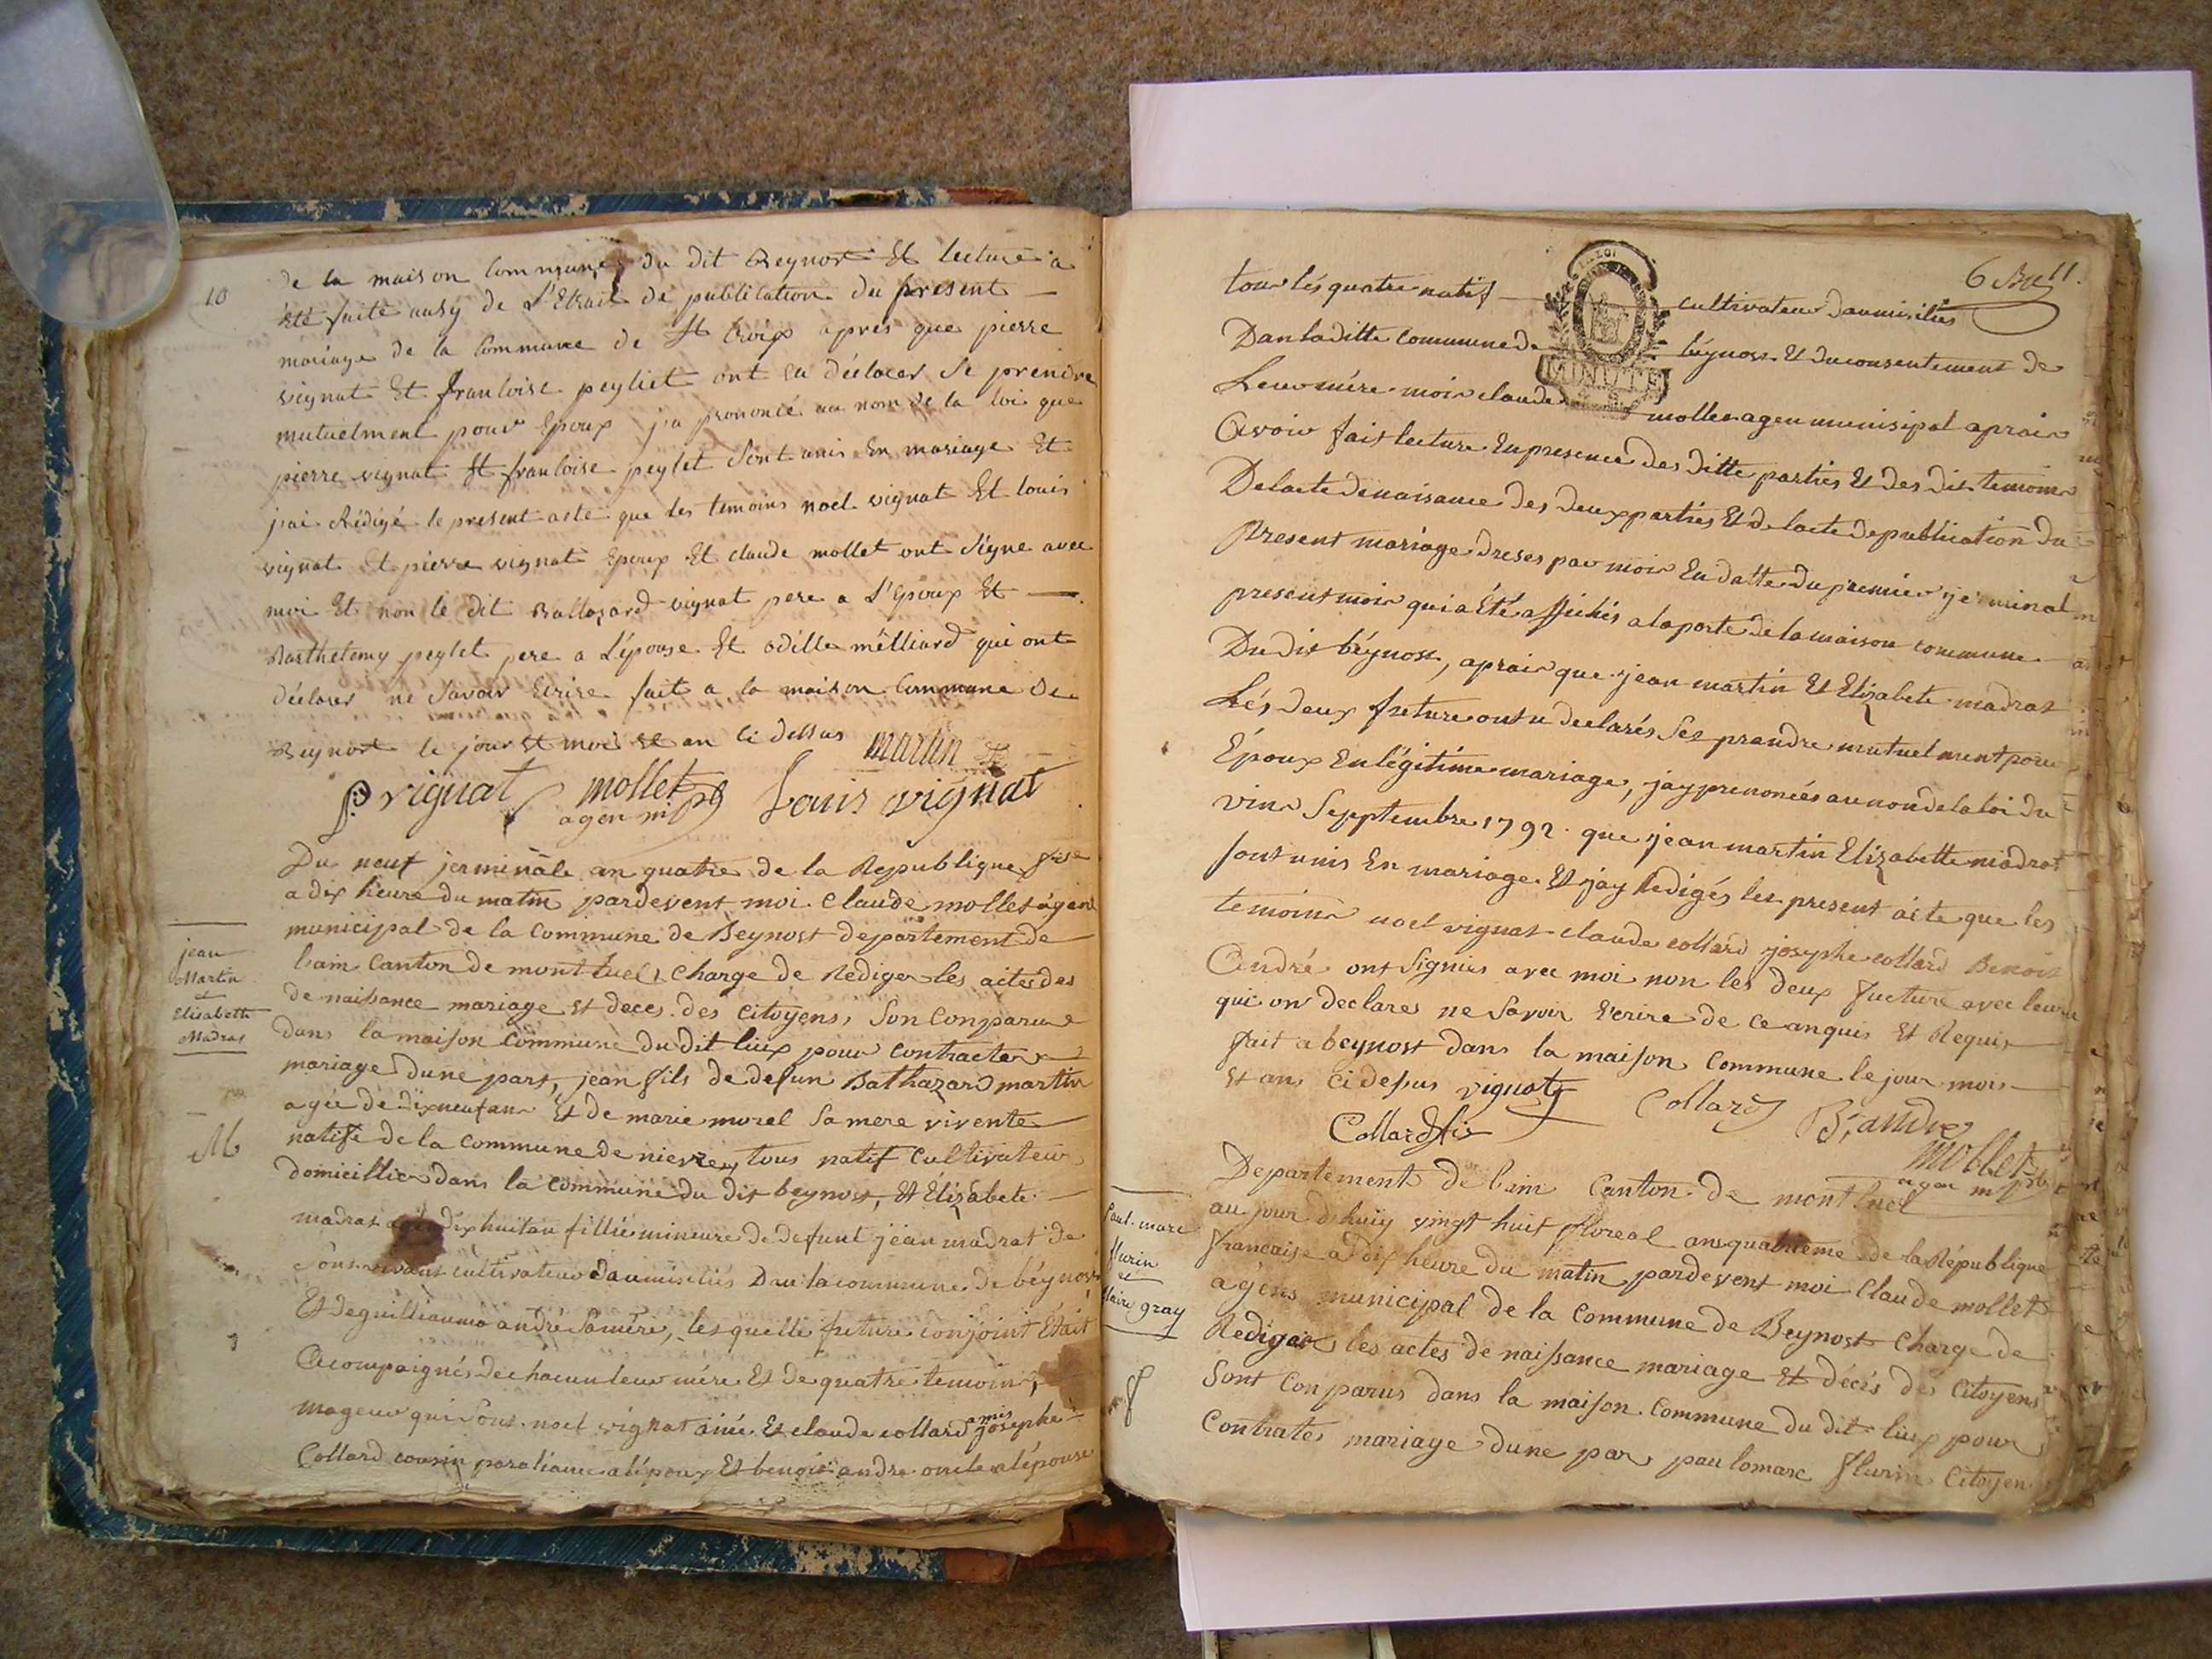 10
de la maison Commune du dit Beynost Et lecture a
Eté faite ausy de L'Etrait de publication du present
mariage de la Commune de St Croix apres que pierre
vignat Et francoise peyliet ont eu déclarer Se prendre
mutuelment pour Epoux j'a prononcé au nom de la loi que
pierre vignat Et francoise peylet Sont unis En mariage Et
j'ai Rédigé le present acte que les temoins noel vignat Et louis
vignat Et pierre vignat Epoux Et claude mollet ont Signe avec
moi Et non le dit Ballazard vignat pere a L'Epoux Et
Barthelemy peylet pere a L'épouse Et odille mélliard qui ont
déclarer ne Savoir Ecrire fait a la maison Commune de
Beynost le jour Et mois Et an Ci dessus martin
P vignat mollet Louis vignat
agen mpl
Du neuf jerminale an quatre de la Republique frse
a dix heure du matin pardevent moi Claude mollet agent
municipal de la Commune de Beynost departement de
lain Canton de montluel Charge de Rediger les actes des
de naissance mariage Et deces des Citoyens Son Conparus
dans la maison Commune du dit lieux pour Contracter
mariage dune part, jean fils de defun Bathazard martin
agée de dixneuf ans Et de marie morel Sa mere vivente
natife de la Commune de nievres tous natif Cultivateurs
domicillier dans la Commune du dit beynost, Et Elizabete
madrat dixhuit an fillie mineure de defunt jean madrat de
Sons vivant cultivateur daumisiliés Dan la commune de béynost
Et de guilliauma andré Saméré, lesquelle future conjoint Etait
Acompaignés de chacun leur mére Et de quatre temoins,
mageur qui Sont noel vignat ainé Et claude collard amis josephe
Collard cousin paraliance a lépoux Et benoit andre oncle a lépouse
jean
Martin
et
Elisabeth
Madras
M
6 11.
tous lés quatre natif cultivateur daumisiliés
Dan laditte commune de béynost Et du consentement de
Leur mére moi claude mollet agen munisipal aprais
Avoir fait lecture En presence des ditte parties Et des dit temoins
De lacte de naisance des deux parties Et de lacte de publication du
Present mariage dreses par moi En datte du premier jerminal
present mois qui a été affichés a la porte de la maison commune
Du dit béynost, aprais que jean martin Et Elizabete madrat
Lés deux future ont u declarés Ses prandre mutuelment pour
Époux En légitime mariage, jay prenoncés au nom de la loi du
vint Septembre 1792 que jean martin Elizabette madrat
Sont unis En mariage Et jay Redigés les present acte que les
temoins noel vignat claude collard josephe collard Benoit
André ont Signies avec moi non les deux fucture avec leur
qui on declares ne Savoir Ecrire de ce anquis Et Requis
fait a beynost dans la maison Commune le jour mois
Et an Ci desus vignat Collard B, andre
Collard fis mollet
agen mpl
Departement de lain Canton de montluel
au jour dhuiy vingt huit floreal ans quatrieme de la République
francaise a dix heure du matin pardevent moi Claude mollet
agens municipal de la Commune de Beynost Charge de
Rediger les actes de naissance mariage Et décés des Citoyens
Sont Conparus dans la maison Commune du dit lieux pour
Contrates mariage dune par paulomarc flurin Citoyen
paul marc
flurin
et
claire gray
f
LA LOI
MINUTE